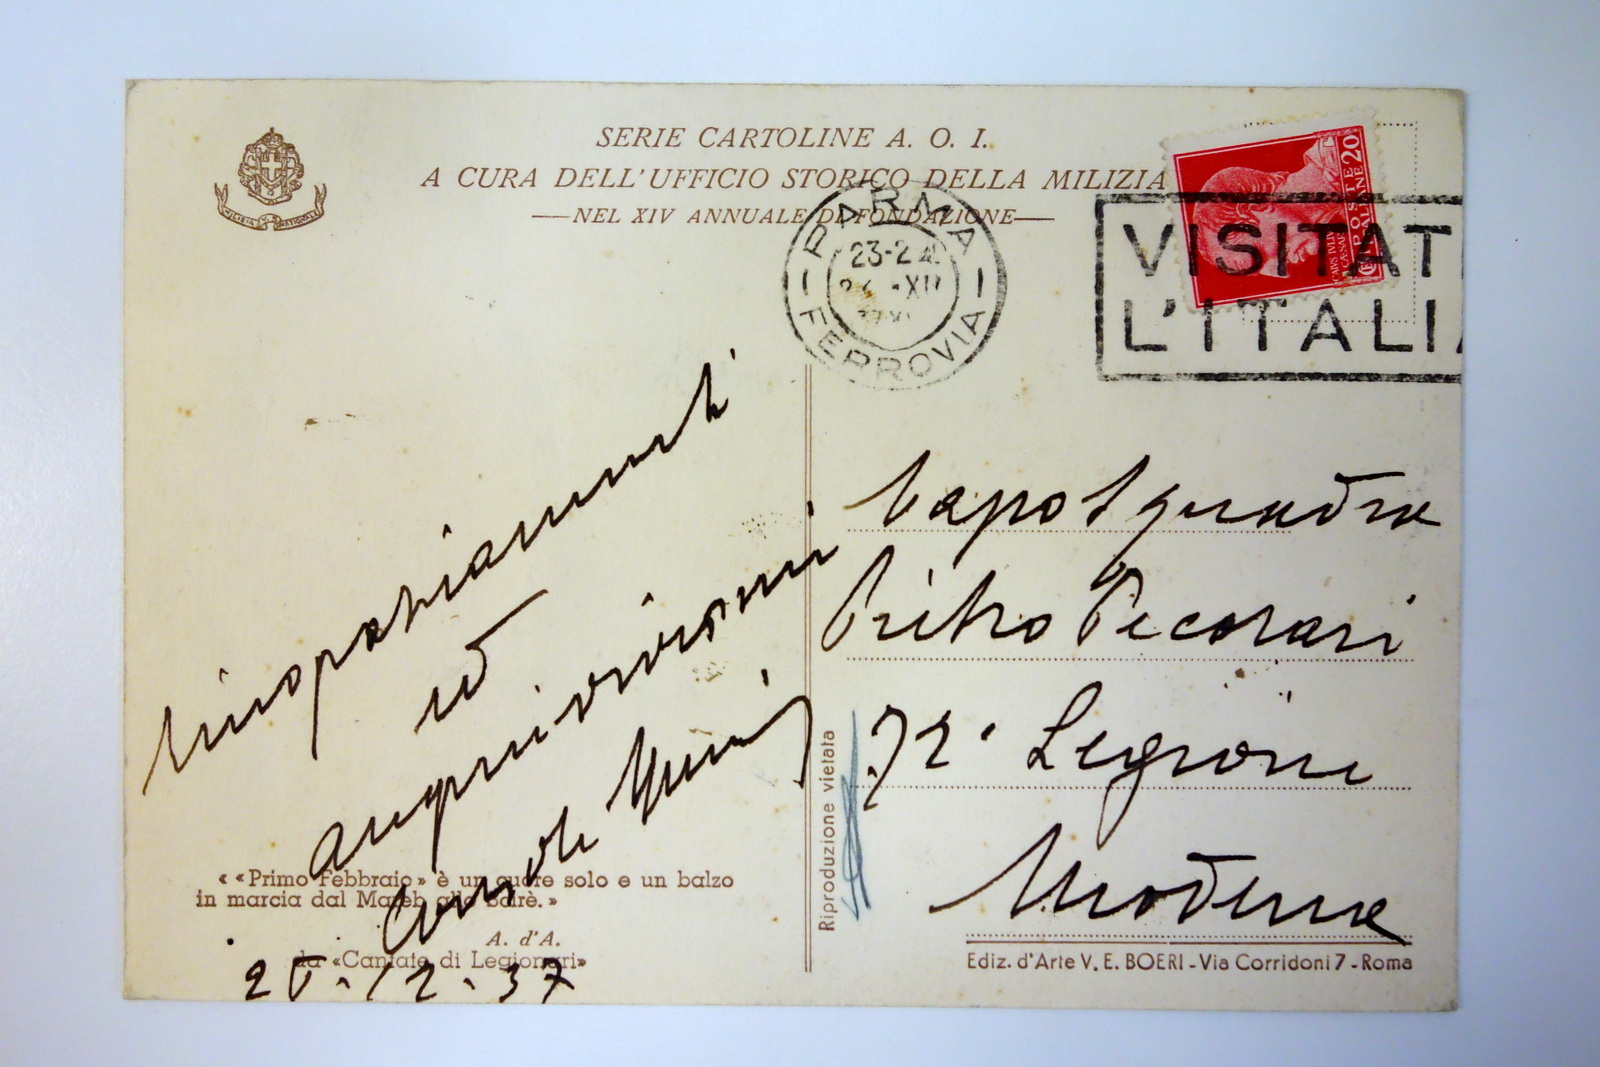 SERIE CARTOLINE A. O. I.
A CURA DELL'UFFICIO STORICO DELLA MILIZIA
NEL XIV ANNUALE DI FONDAZIONE
MILIZIA NAZIONALE
POSTE ITALIANE 20
PARMA
23-24
FERROVIA
VISITATE
L'ITALIA
ed
Console
25.12.37
Capo Squadra
Pietro Pecorari
72ª Legione
Modena
« «Primo Febbraio» è un cuore solo e un balzo
in marcia dal Mareb allo Scirè.»
A. d'A.
da «Cantate di Legionari»
Riproduzione vietata
Ediz. d'Arte V. E. BOERI - Via Corridoni 7 - Roma